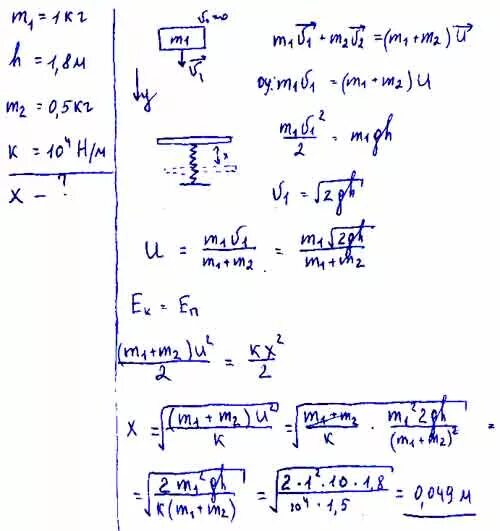 m₁ = 1 кг
h = 1,8 м
m₂ = 0,5 кг
к = 10⁴ Н/м
x – ?
v₀ = 0
m₁
v⃗₁
y
x
m₁v⃗₁ + m₂v⃗₂ = (m₁+m₂)u⃗
oy: m₁v₁ = (m₁+m₂)u
m₁v₁²/2 = m₁gh
v₁ = √2gh
u = m₁v₁/(m₁+m₂) = m₁√2gh/(m₁+m₂)
Eк = Eп
(m₁+m₂)u²/2 = кx²/2
x = √((m₁+m₂)u²/к) = √((m₁+m₂)/к · m₁²2gh/(m₁+m₂)²) =
= √(2m₁²gh/(к(m₁+m₂))) = √(2·1²·10·1,8/(10⁴·1,5)) = 0,049 м